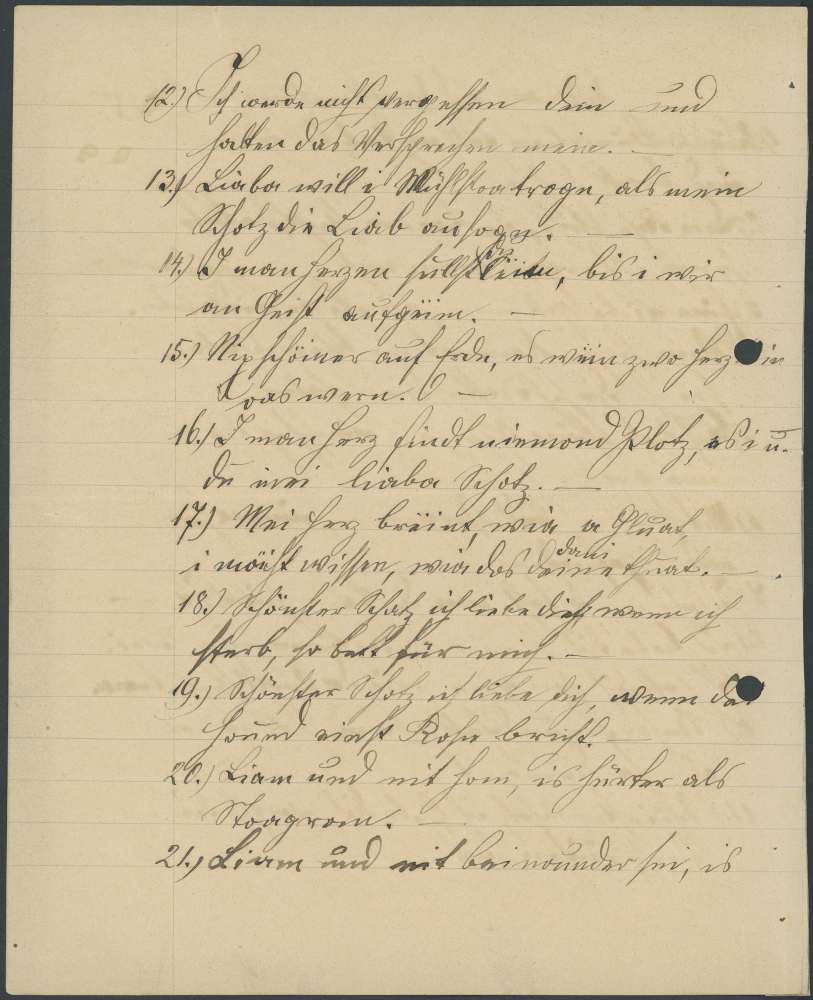 12.) Ich werde nicht vergessen dein und
halten das Versprechen mein. —
13.) Liaba will i Mühlstoa trogn, als mein
Schotz die Liab aufsogn. —
14.) I man Herzen sullst di, bis i wir
an Geist aufgeim. —
15.) Nix schöiners auf Erdn, es wëin zwo Herz in
oas wern. —
16.) I man Herz findt niemond Plotz, as i u.
du mei liaba Schotz. —
17.) Mei Herz brëint, wia a Gluat,
i möcht wissen, wia das deine dani thuat. —
18.) Schönster Schatz ich liebe dich wenn ich
sterb, so bett für mich. —
19.) Schönster Schotz ich liebe dich, wenn de
Hound einst Rosn bricht. —
20.) Liam und nit hom, is hürter als
Stoagrom. —
21.) Liam und nit beinounder sei, is